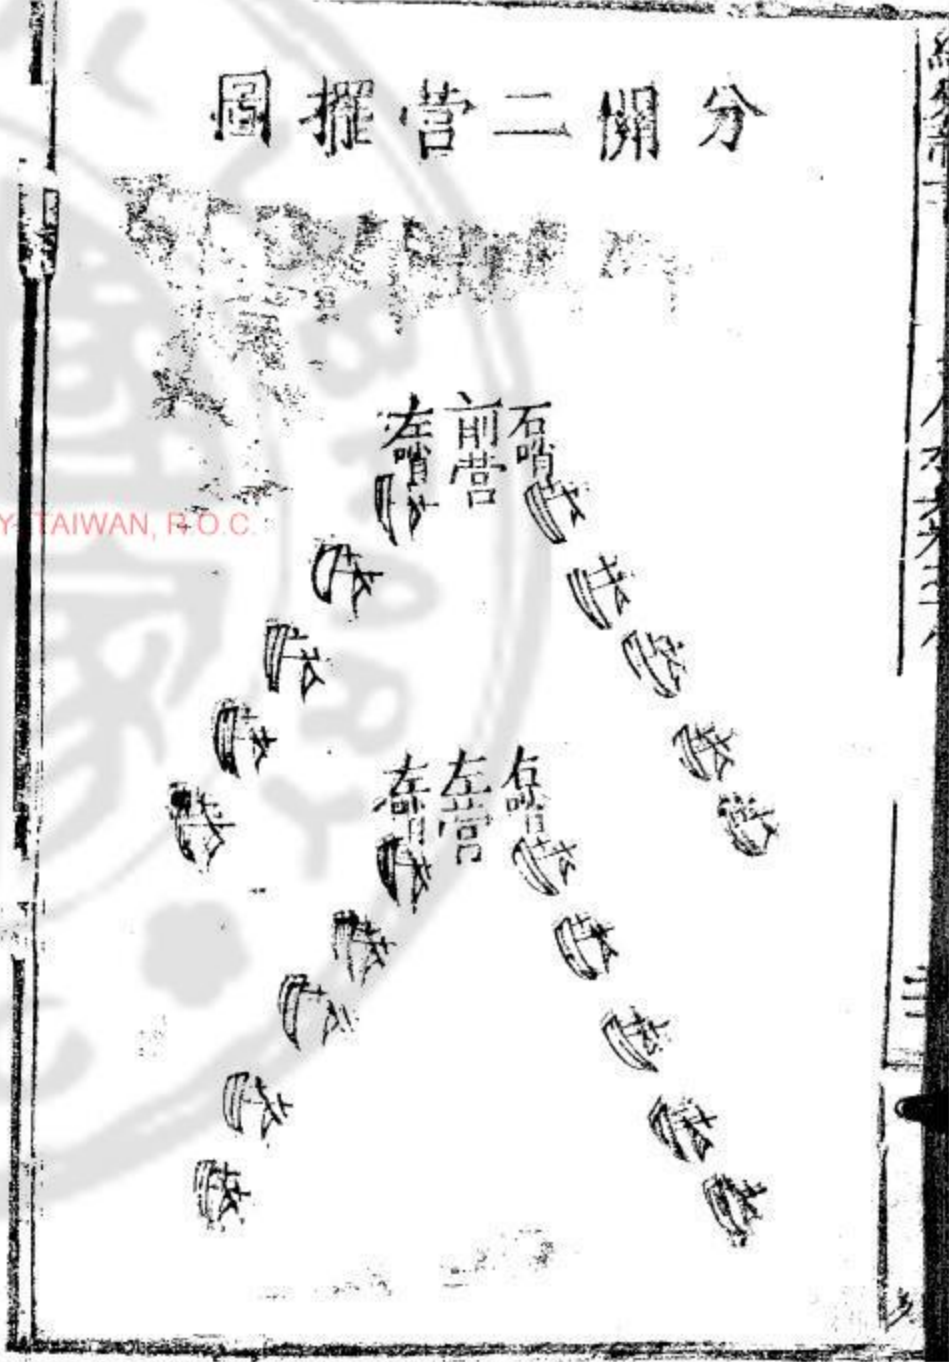 分開二營擺圖
右哨
前營
左哨
右哨
左營
左哨
三
Y TAIWAN, R.O.C.